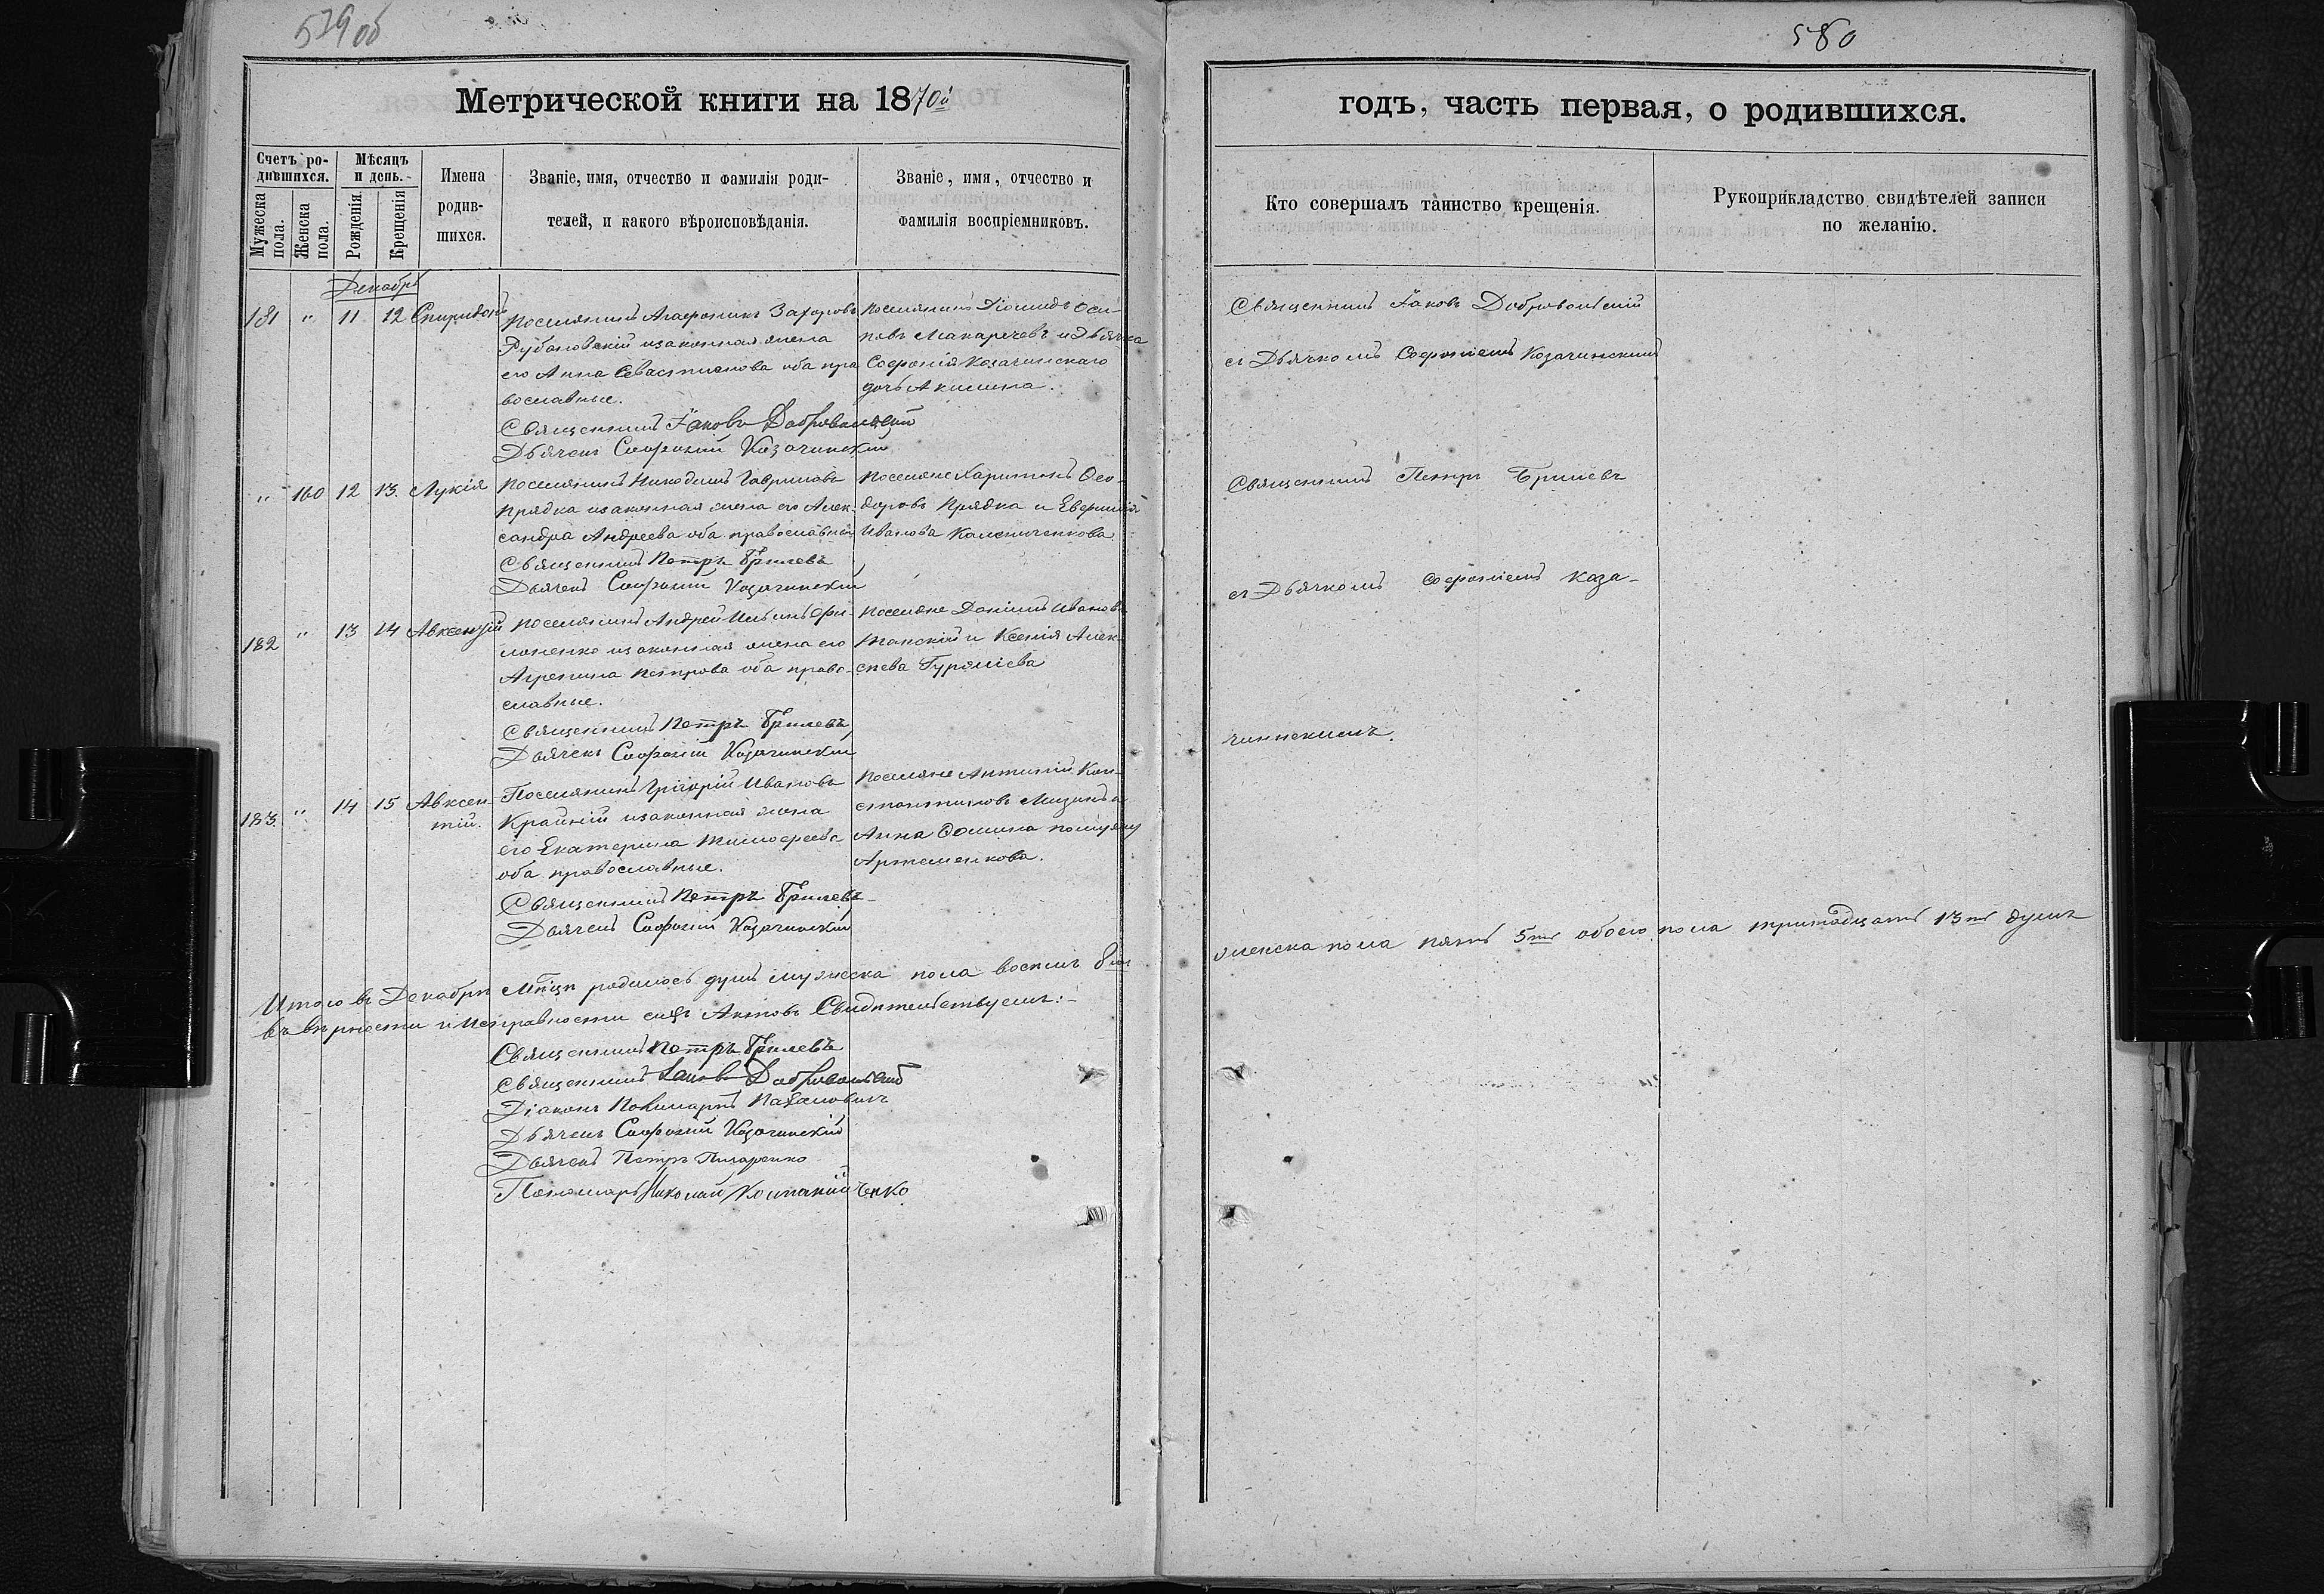 579 об
580
Метрической книги на 1870й
годъ, часть первая, о родившихся.
Счетъ родившихся.
Мѣсяцъ и день.
Мужеска пола.
Женска пола.
Рожденія
Крещенія
Имена родившихся.
Званіе, имя, отчество и фамилія роди-
телей, и какого вѣроисповѣданія.
Званіе, имя, отчество и
фамилія воспріемниковъ.
Кто совершалъ таинство крещенія.
Рукоприкладство свидѣтелей записи
по желанію.
Декабрь
181 " 11 12 Спиридонъ
Поселянинъ Агафоникъ Захаровъ
Рубановскій изаконная жена
его Анна Севастианова оба пра
вославные.
Священникъ Іаковъ Добровольскій
Дьячекъ Софроній Козачинскій
Поселянинъ Діомидъ Оси-
повъ Макаречевъ и Дьячка
Софронія Козачинскаго
дочь Акилина.
Священникъ Іаковъ Добровольскій
съ Дьячкомъ Софроніемъ Козачинскимъ
" 160 12 13. Лукія
Поселянинъ Никодимъ Гавриловъ
Прядка изаконная жена его Алек-
сандра Андреева оба православные
Священникъ Петръ Брилевъ
Дьячекъ Софроній Козачинскій
Поселяне Харитонъ Ѳео-
доровъ Прядка и Евфимія
Иванова Колесниченкова
Священникъ Петръ Брилевъ
съ Дьячкомъ Софроніемъ Коза-
182 " 13 14 Авксентій
Поселянинъ Андрей Ильинъ Фи-
лоненко изаконная жена его
Агрепина Петрова оба право-
славные.
Священникъ Петръ Брилевъ
Дьячекъ Софроній Козачинскій
Поселяне Даніилъ Ивановъ
Танскій и Ксенія Алек-
сѣева
чинскимъ.
183. " 14 15 Авксен-
тій.
Поселянинъ Григорій Ивановъ
Крайній изаконная жена
его Екатерина Тимофеева
оба православные.
Священникъ Петръ Брилевъ
Дьячекъ Софроній Козачинскій
Поселяне Антипій Кон-
стантиновъ Мизинъ и
Анна Ѳомина помужу
Артеменкова.
Итого въ Декабрѣ Мѣсцѣ родилось душъ мужеска пола восемь 8мь
женска пола пять 5ть обоего пола тринадцать 13ть душъ
въ вѣрности и исправности сихъ Актовъ Свидѣтельствуемъ:-
Священникъ Петръ Брилевъ
Священникъ Іаковъ Добровольскій
Діаконъ
Дьячекъ Софроній Козачинскій
Дьячекъ Петръ Писаренко
Пономарь Николай Компанійченко